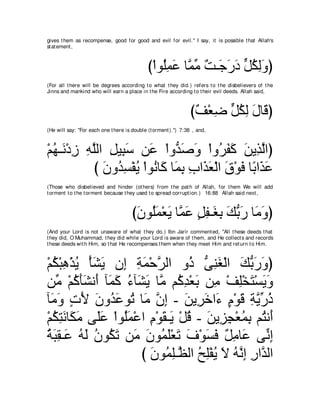 gives them as recompense, good for good and evil for evil." I say, it is possible that Allah's
statement,
﴿وَلِكُلٍّ دَرَجَـتٌ مِّمَّا عَمِلُواْ﴾
(For all there will be degrees according to what they did.) refers to the disbelievers of the
Jinns and mankind who will earn a place in the Fire according to their evil deeds. Allah said,
﴿قَالَ لِكُلٍّ ضِعْفٌ﴾
(He will say: "For each one there is double (torment).") 7:38 , and,
﴿الَّذِينَ كَفَرُواْ وَصَدُّواْ عَن سَبِيلِ اللَّهِ زِدْنَـهُمْ
عَذَابًا فَوْقَ الْعَذَابِ بِمَا كَانُواْ يُفْسِدُونَ ﴾
(Those who disbelieved and hinder (others) from the path of Allah, for them We will add
torment to the torment because they used to spread corruption.) 16:88 Allah said next,
﴿وَمَا رَبُّكَ بِغَـفِلٍ عَمَّا يَعْمَلُونَ﴾
(And your Lord is not unaware of what they do.) Ibn Jarir commented, "All these deeds that
they did, O Muhammad, they did while your Lord is aware of them, and He collects and records
these deeds with Him, so that He recompenses them when they meet Him and return to Him.
﴿وَرَبُّكَ الْغَنِىُّ ذُو الرَّحْمَةِ إِن يَشَأْ يُذْهِبْكُمْ
وَيَسْتَخْلِفْ مِن بَعْدِكُم مَّا يَشَآءُ كَمَآ أَنشَأَكُمْ مِّن
ذُرِّيَّةِ قَوْمٍ ءَاخَرِينَ - إِنَّ مَا تُوعَدُونَ لأَتٍ وَمَآ
أَنتُم بِمُعْجِزِينَ - قُلْ يَـقَوْمِ اعْمَلُواْ عَلَى مَكَانَتِكُمْ
إِنِّى عَامِلٌ فَسَوْفَ تَعْلَمُونَ مَن تَكُونُ لَهُ عَـقِبَةُ
الدَّارِ إِنَّهُ لاَ يُفْلِحُ الظَّـلِمُونَ ﴾